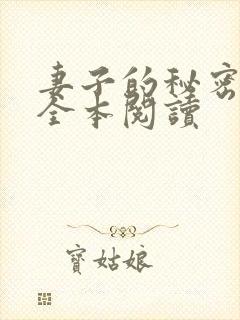 妻子的秘密
全本閱讀
寶姑娘